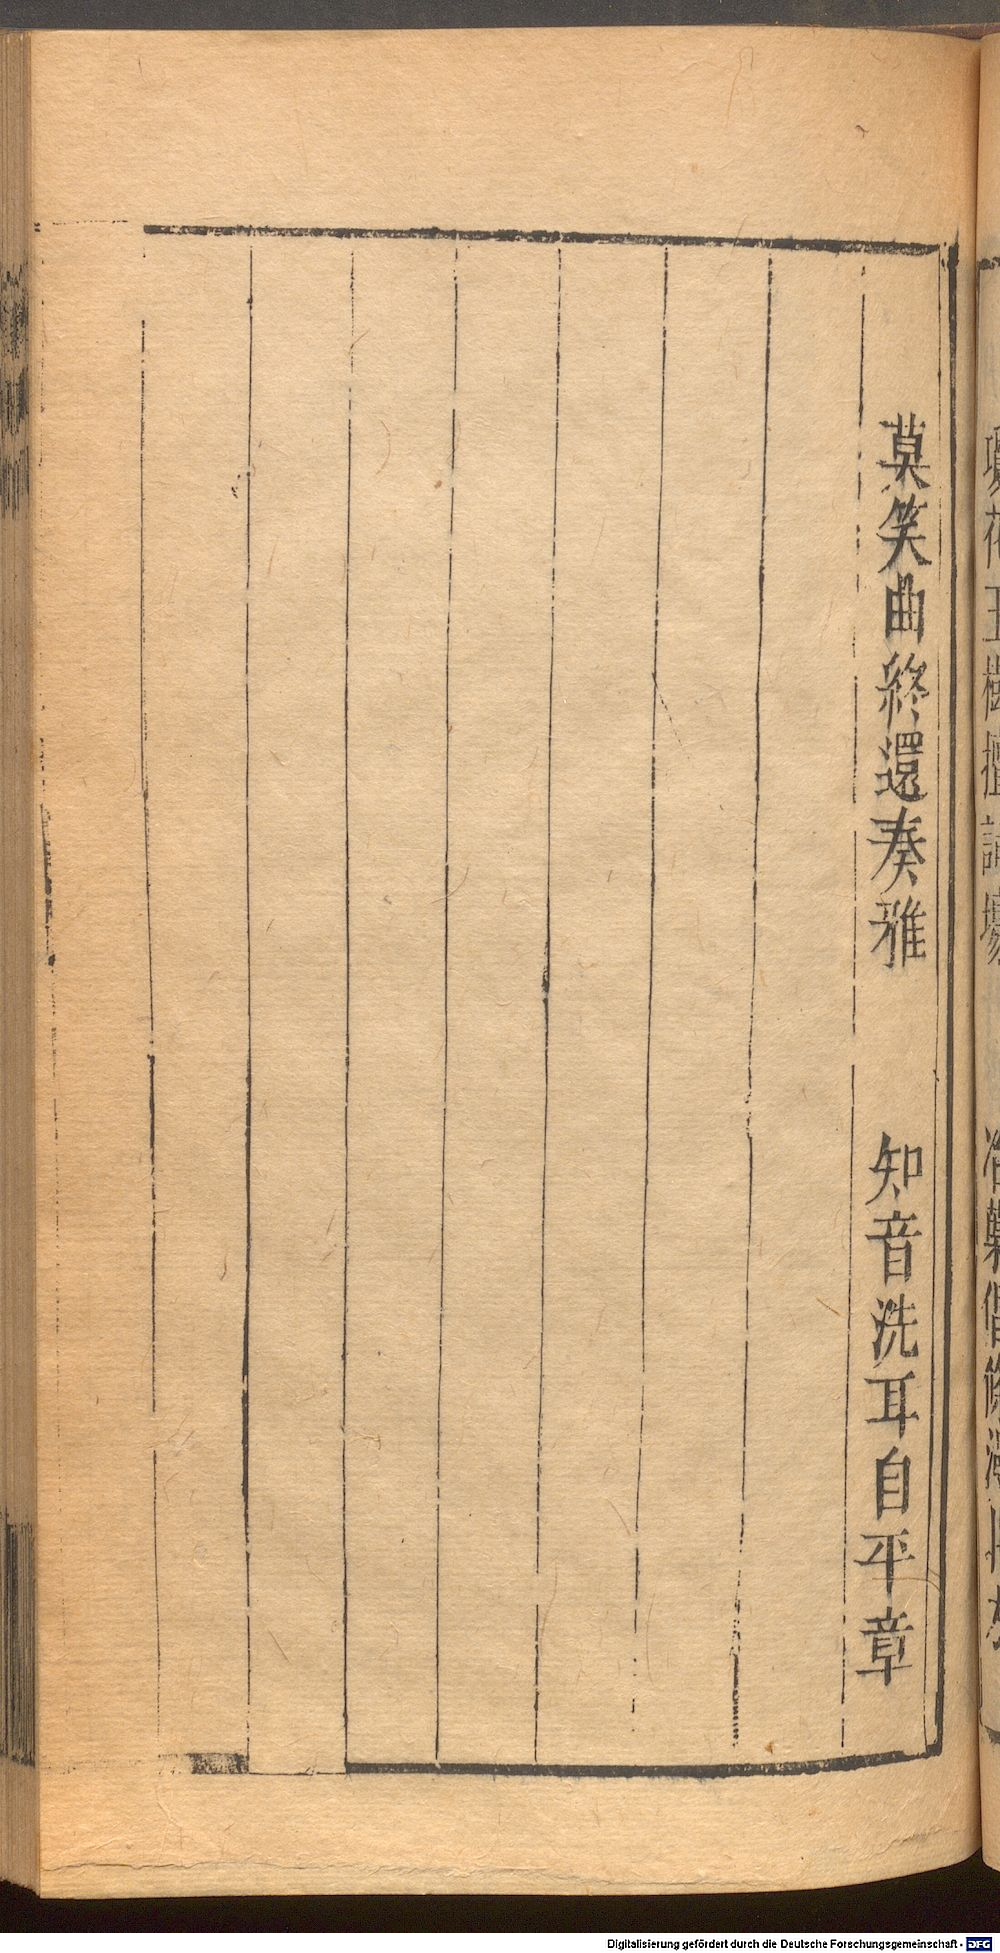 莫笑曲終還奏雅　知音洗耳自平章
Digitalisierung gefördert durch die Deutsche Forschungsgemeinschaft - DFG